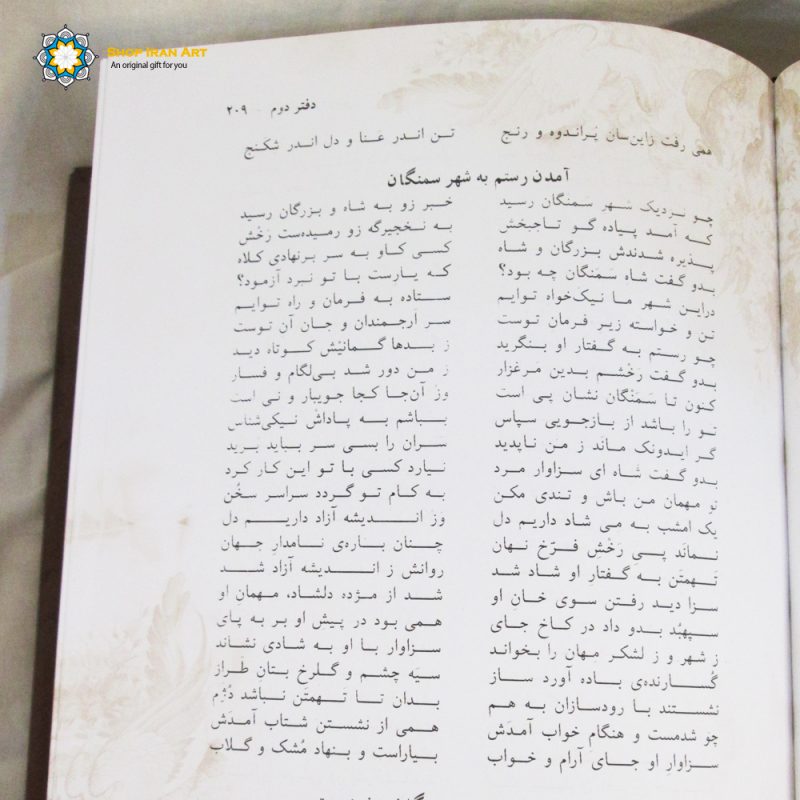 Shop Iran Art
An original gift for you
دفتر دوم ۲۰۹
همی رفت زاین‌سان پُراندوه و رنج تن اندر عَنا و دل اندر شکنج
آمدن رستم به شهر سمنگان
چو نزدیک شهر سَمَنگان رسید خبر زو به شاه و بزرگان رسید
که آمد پیاده گو تاجبخش به نخجیرگه زو رمیده‌ست رَخْش
پذیره شدندش بزرگان و شاه کسی کاو به سر برنهادی کلاه
بدو گفت شاه سَمَنگان چه بود؟ که یارست با تو نبرد آزمود؟
دراین شهر ما نیک‌خواه توایم ستاده به فرمان و راه توایم
تن و خواسته زیر فرمان توست سر اَرجمندان و جان آن توست
چو رستم به گفتار او بنگرید ز بدها گمانیْش کوتاه دید
بدو گفت رَخْشم بدین مرغزار ز من دور شد بی‌لگام و فسار
کنون تا سَمَنْگان نشان پی است وز آن‌جا کجا جویبار و نی است
تو را باشد از بازجویی سپاس بباشم به پاداش نیکی‌شناس
گر ایدونک ماند ز من ناپدید سَران را بسی سر بباید برید
بدو گفت شاه ای سزاوار مرد نیارد کسی با تو این کار کرد
تو مهمان من باش و تندی مکن به کام تو گردد سراسر سخُن
یک امشب به می شاد داریم دل وز انـدیشه آزاد داریـم دل
نماند پیِ رَخْش فرّخ نهان چنان باره‌ی نامدارِ جهان
تَهمتَن به گفتارِ او شاد شد روانش ز اندیشه آزاد شد
سزا دید رفتن سوی خان او شد از مژده دلشاد، مهمانِ او
سپهبُد بدو داد در کاخ جای همی بود در پیش او بر به پای
ز شهر و ز لشکر مِهان را بخواند سزاوار با او به شادی نشاند
گُسارنده‌ی باده آورد ساز سیَه چشم و گلرخ بتانِ طَراز
نشستند با رودسازان به هم بدان تا تَهمتَن نباشد دُژم
چو شدمست و هنگامِ خواب آمدَش همی از نشستن شتاب آمدَش
سزاوارِ او جای آرام و خواب بیاراست و بنهاد مُشک و گلاب